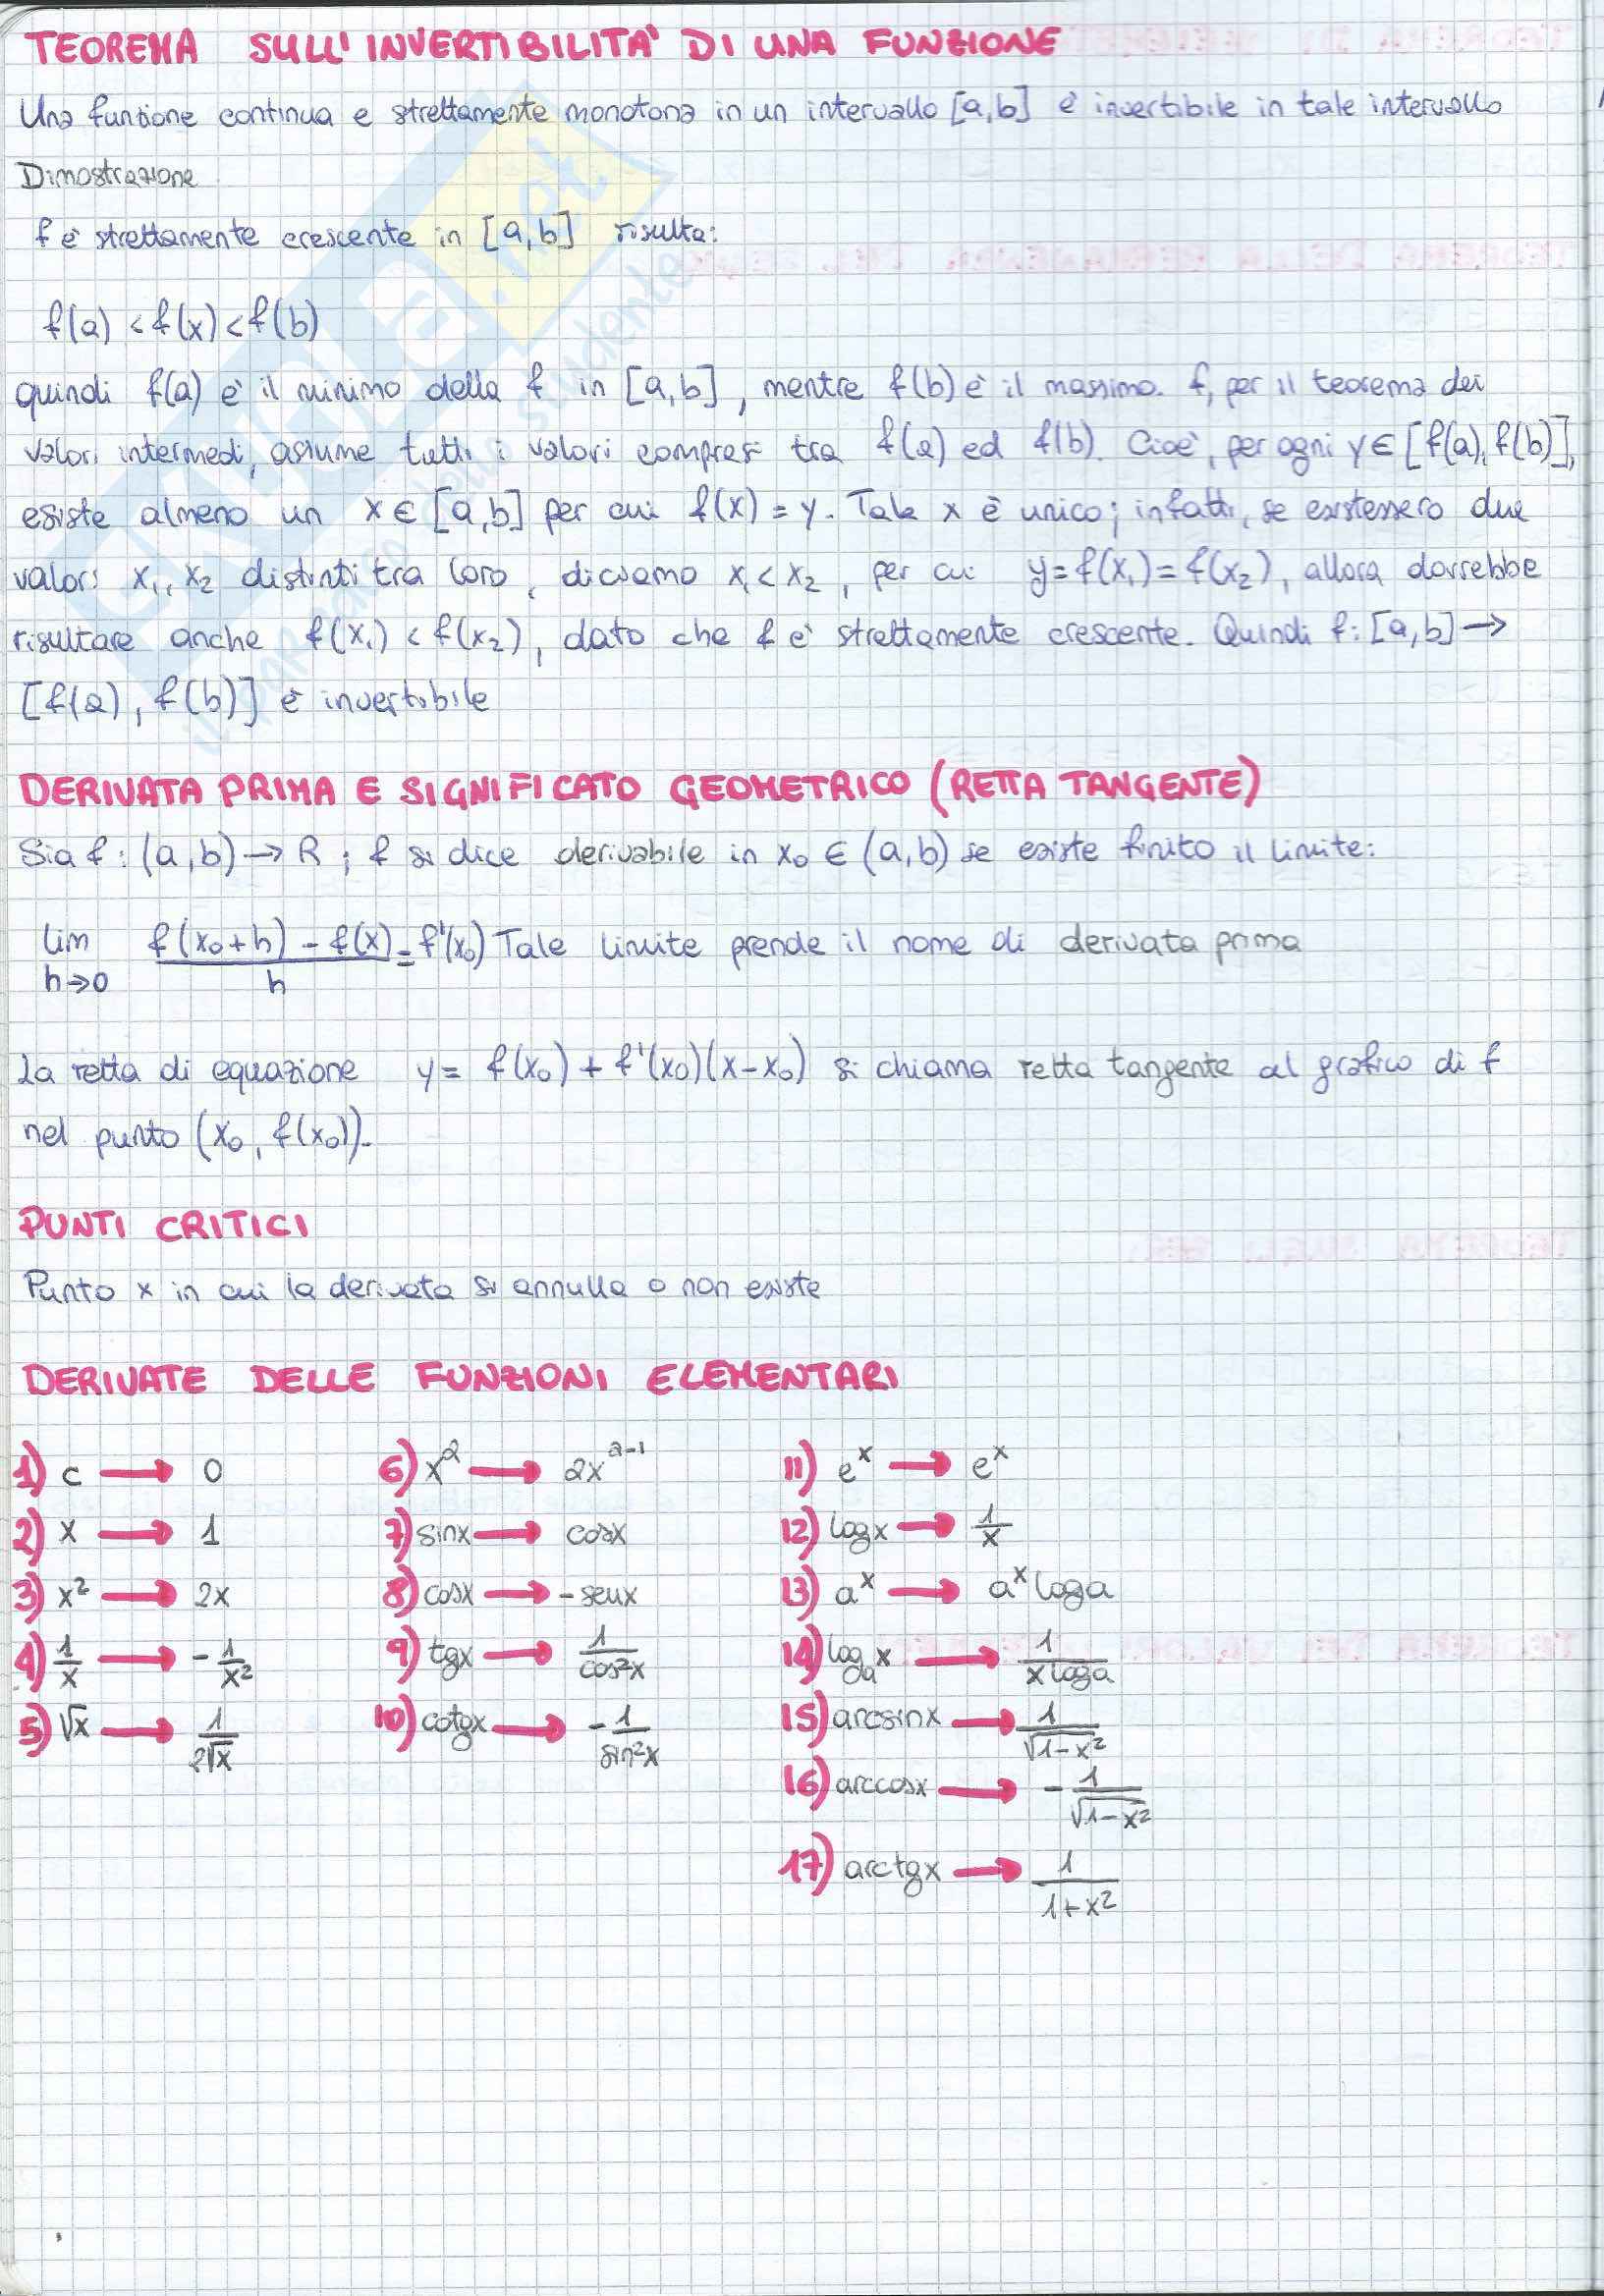 TEOREMA SULL'INVERTIBILITA' DI UNA FUNZIONE
Una funzione continua e strettamente monotona in un intervallo [a,b] è invertibile in tale intervallo
Dimostrazione
f è strettamente crescente in [a,b] risulta:
f(a) < f(x) < f(b)
quindi f(a) è il minimo della f in [a,b], mentre f(b) è il massimo. f, per il teorema dei
valori intermedi, assume tutti i valori compresi tra f(a) ed f(b). Cioè, per ogni y ∈ [f(a), f(b)],
esiste almeno un x ∈ [a,b] per cui f(x) = y. Tale x è unico; infatti, se esistessero due
valori x₁, x₂ distinti tra loro, diciamo x₁ < x₂, per cui y = f(x₁) = f(x₂), allora dovrebbe
risultare anche f(x₁) < f(x₂), dato che f è strettamente crescente. Quindi f: [a,b] →
[f(a), f(b)] è invertibile
DERIVATA PRIMA E SIGNIFICATO GEOMETRICO (RETTA TANGENTE)
Sia f: (a,b) → R; f si dice derivabile in x₀ ∈ (a,b) se esiste finito il limite:
lim f(x₀+h) - f(x) = f'(x₀) Tale limite prende il nome di derivata prima
h→0 h
La retta di equazione y = f(x₀) + f'(x₀)(x-x₀) si chiama retta tangente al grafico di f
nel punto (x₀, f(x₀)).
PUNTI CRITICI
Punto x in cui la derivata si annulla o non esiste
DERIVATE DELLE FUNZIONI ELEMENTARI
1) c → 0
2) x → 1
3) x² → 2x
4) 1/x → -1/x²
5) √x → 1/2√x
6) x² → 2x²⁻¹
7) sinx → cosx
8) cosx → -senx
9) tgx → 1/cos²x
10) cotgx → -1/sin²x
11) eˣ → eˣ
12) logx → 1/x
13) aˣ → aˣ loga
14) logₐx → 1/xloga
15) arcsinx → 1/√1-x²
16) arccosx → -1/√1-x²
17) arctgx → 1/1+x²